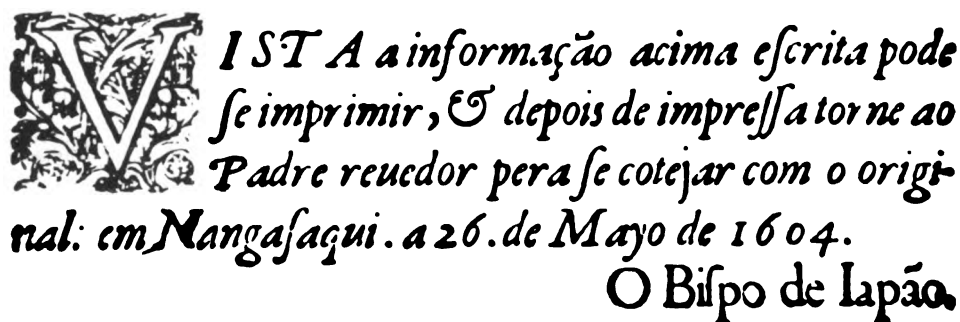 VISTA a informação acima eſcrita pode
ſe imprimir, & depois de impreſſa torne ao
Padre reuedor pera ſe cotejar com o origi-
nal: em Nangaſaqui. a 26. de Mayo de 1604.
O Biſpo de Iapão.